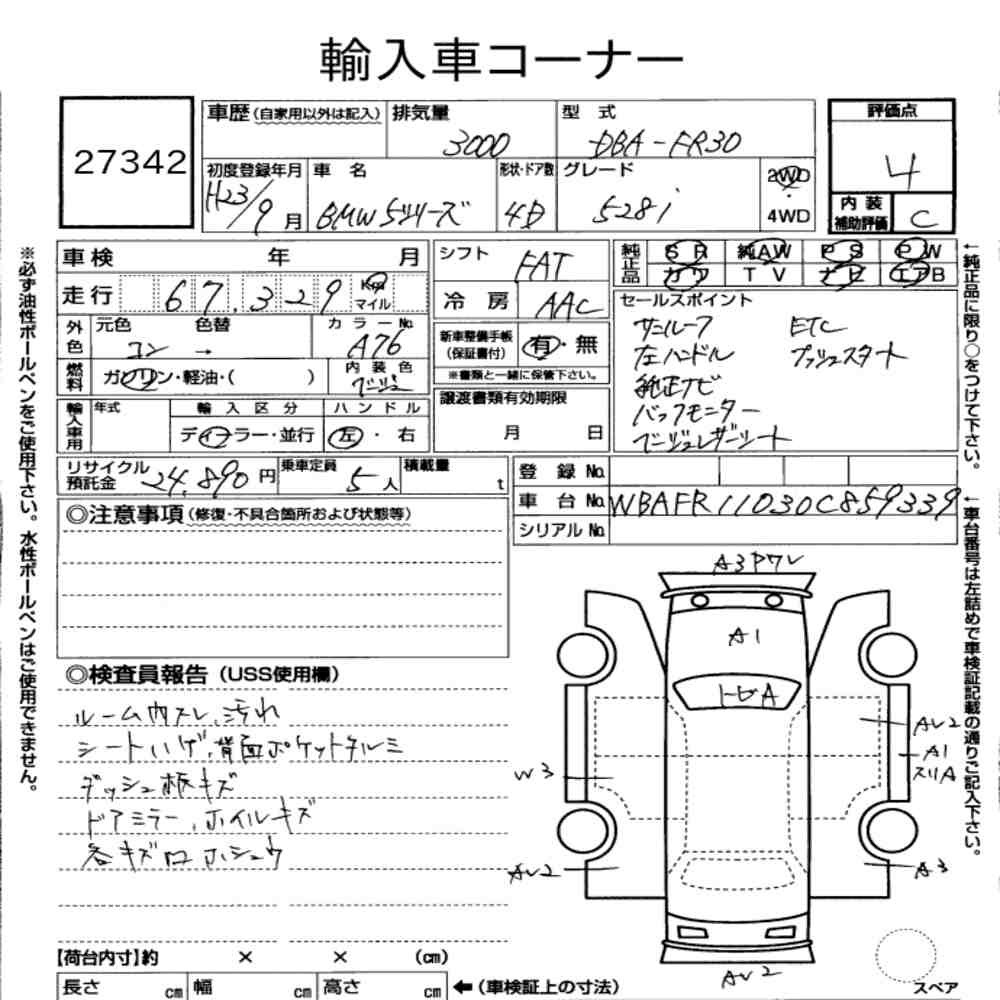 輸入車コーナー
27342
車歴(自家用以外は記入) 排気量 3000 型式 DBA-FR30
初度登録年月 H23/9月 車名 BMW5シリーズ 形状・ドア数 4D グレード 528i 2WD 4WD
評価点 4
内装補助評価 C
車検 年 月
走行 67,329 Km マイル
外色 元色 コン 色替 → カラーNo. A76
燃料 ガソリン・軽油・( ) 内装色 ベージュ
輸入車用 年式 輸入区分 ディーラー・並行 ハンドル 左・右
シフト FAT
冷房 AAC
新車整備手帳(保証書付) 有・無
※書類と一緒に保管下さい。
譲渡書類有効期限
月 日
純正品 SR 純AW PS PW
カワ TV ナビ エアB
セールスポイント
サンルーフ ETC
左ハンドル プッシュスタート
純正ナビ
バックモニター
ベージュレザーシート
←純正品に限り○をつけて下さい。
リサイクル預託金 24,890円 乗車定員 5人 積載量 t
登録No.
車台No. WBAFR11030C859339
シリアルNo.
←車台番号は左詰めで車検証記載の通りご記入下さい。
※必ず油性ボールペンをご使用下さい。水性ボールペンはご使用できません。
◎注意事項(修復・不具合箇所および状態等)
◎検査員報告(USS使用欄)
ルーム内スレ、汚れ
シートハゲ、背面ポケットタルミ
ダッシュ板キズ
ドアミラー、ホイルキズ
各キズ口ホシュウ
A3 Pワレ
A1
トビA
AU2
A1
スリA
W3
AU2
A3
AU2
スペア
【荷台内寸】約 × × (cm)
長さ cm 幅 cm 高さ cm ←(車検証上の寸法)